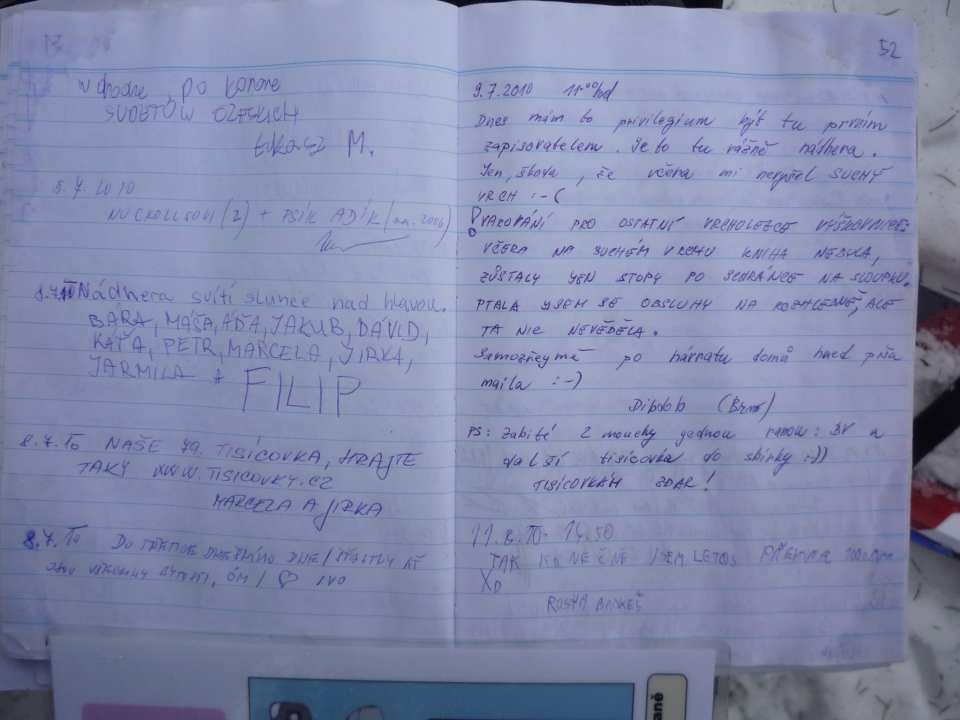 w drodze po koronę
SUDETÓW CZESKICH
Łukasz M.
5.7.2010
(2) + PSÍK ADÍK
8.7.10 Nádhera svítí slunce nad hlavou.
BÁRA, MÁŠA, ÁĎA, JAKUB, DÁVID,
KÁŤA, PETR, MARCELA, JIRKA,
JARMILA + FILIP
8.7.10 NAŠE 79. TISÍCOVKA, HRAJTE
TAKY WWW.TISICOVKY.CZ
MARCELA A JIRKA
8.7.10 DO DNEŠNÍHO DNE / ŠŤASTNY AŤ
JSOU VŠECHNY BYTOSTI, ÓM / ♡ IVO
52
9.7.2010 11:00 hod
Dnes mám to privilegium být tu prvním
zapisovatelem. Je to tu vážně nádhera.
Jen škoda, že včera mi nevyšel SUCHÝ
VRCH :-(
! VAROVÁNÍ PRO OSTATNÍ VRCHOLEZCE
VČERA NA SUCHÉM VRCHU KNIHA NEBYLA,
ZŮSTALY JEN STOPY PO SCHRÁNCE NA SLOUPKU.
PTALA JSEM SE OBSLUHY NA ROZHLEDNĚ, ALE
TA NIC NEVĚDĚLA.
Samozřejmě po návratu domů hned píšu
maila :-)
(Brno)
PS: Zabité 2 mouchy jednou ranou: BV a
další tisícovka do sbírky :-))
TISÍCOVKÁM ZDAR!
11.8.10 14.50
TAK KONEČNĚ JSEM LETOS
XD
ROSŤA
aně